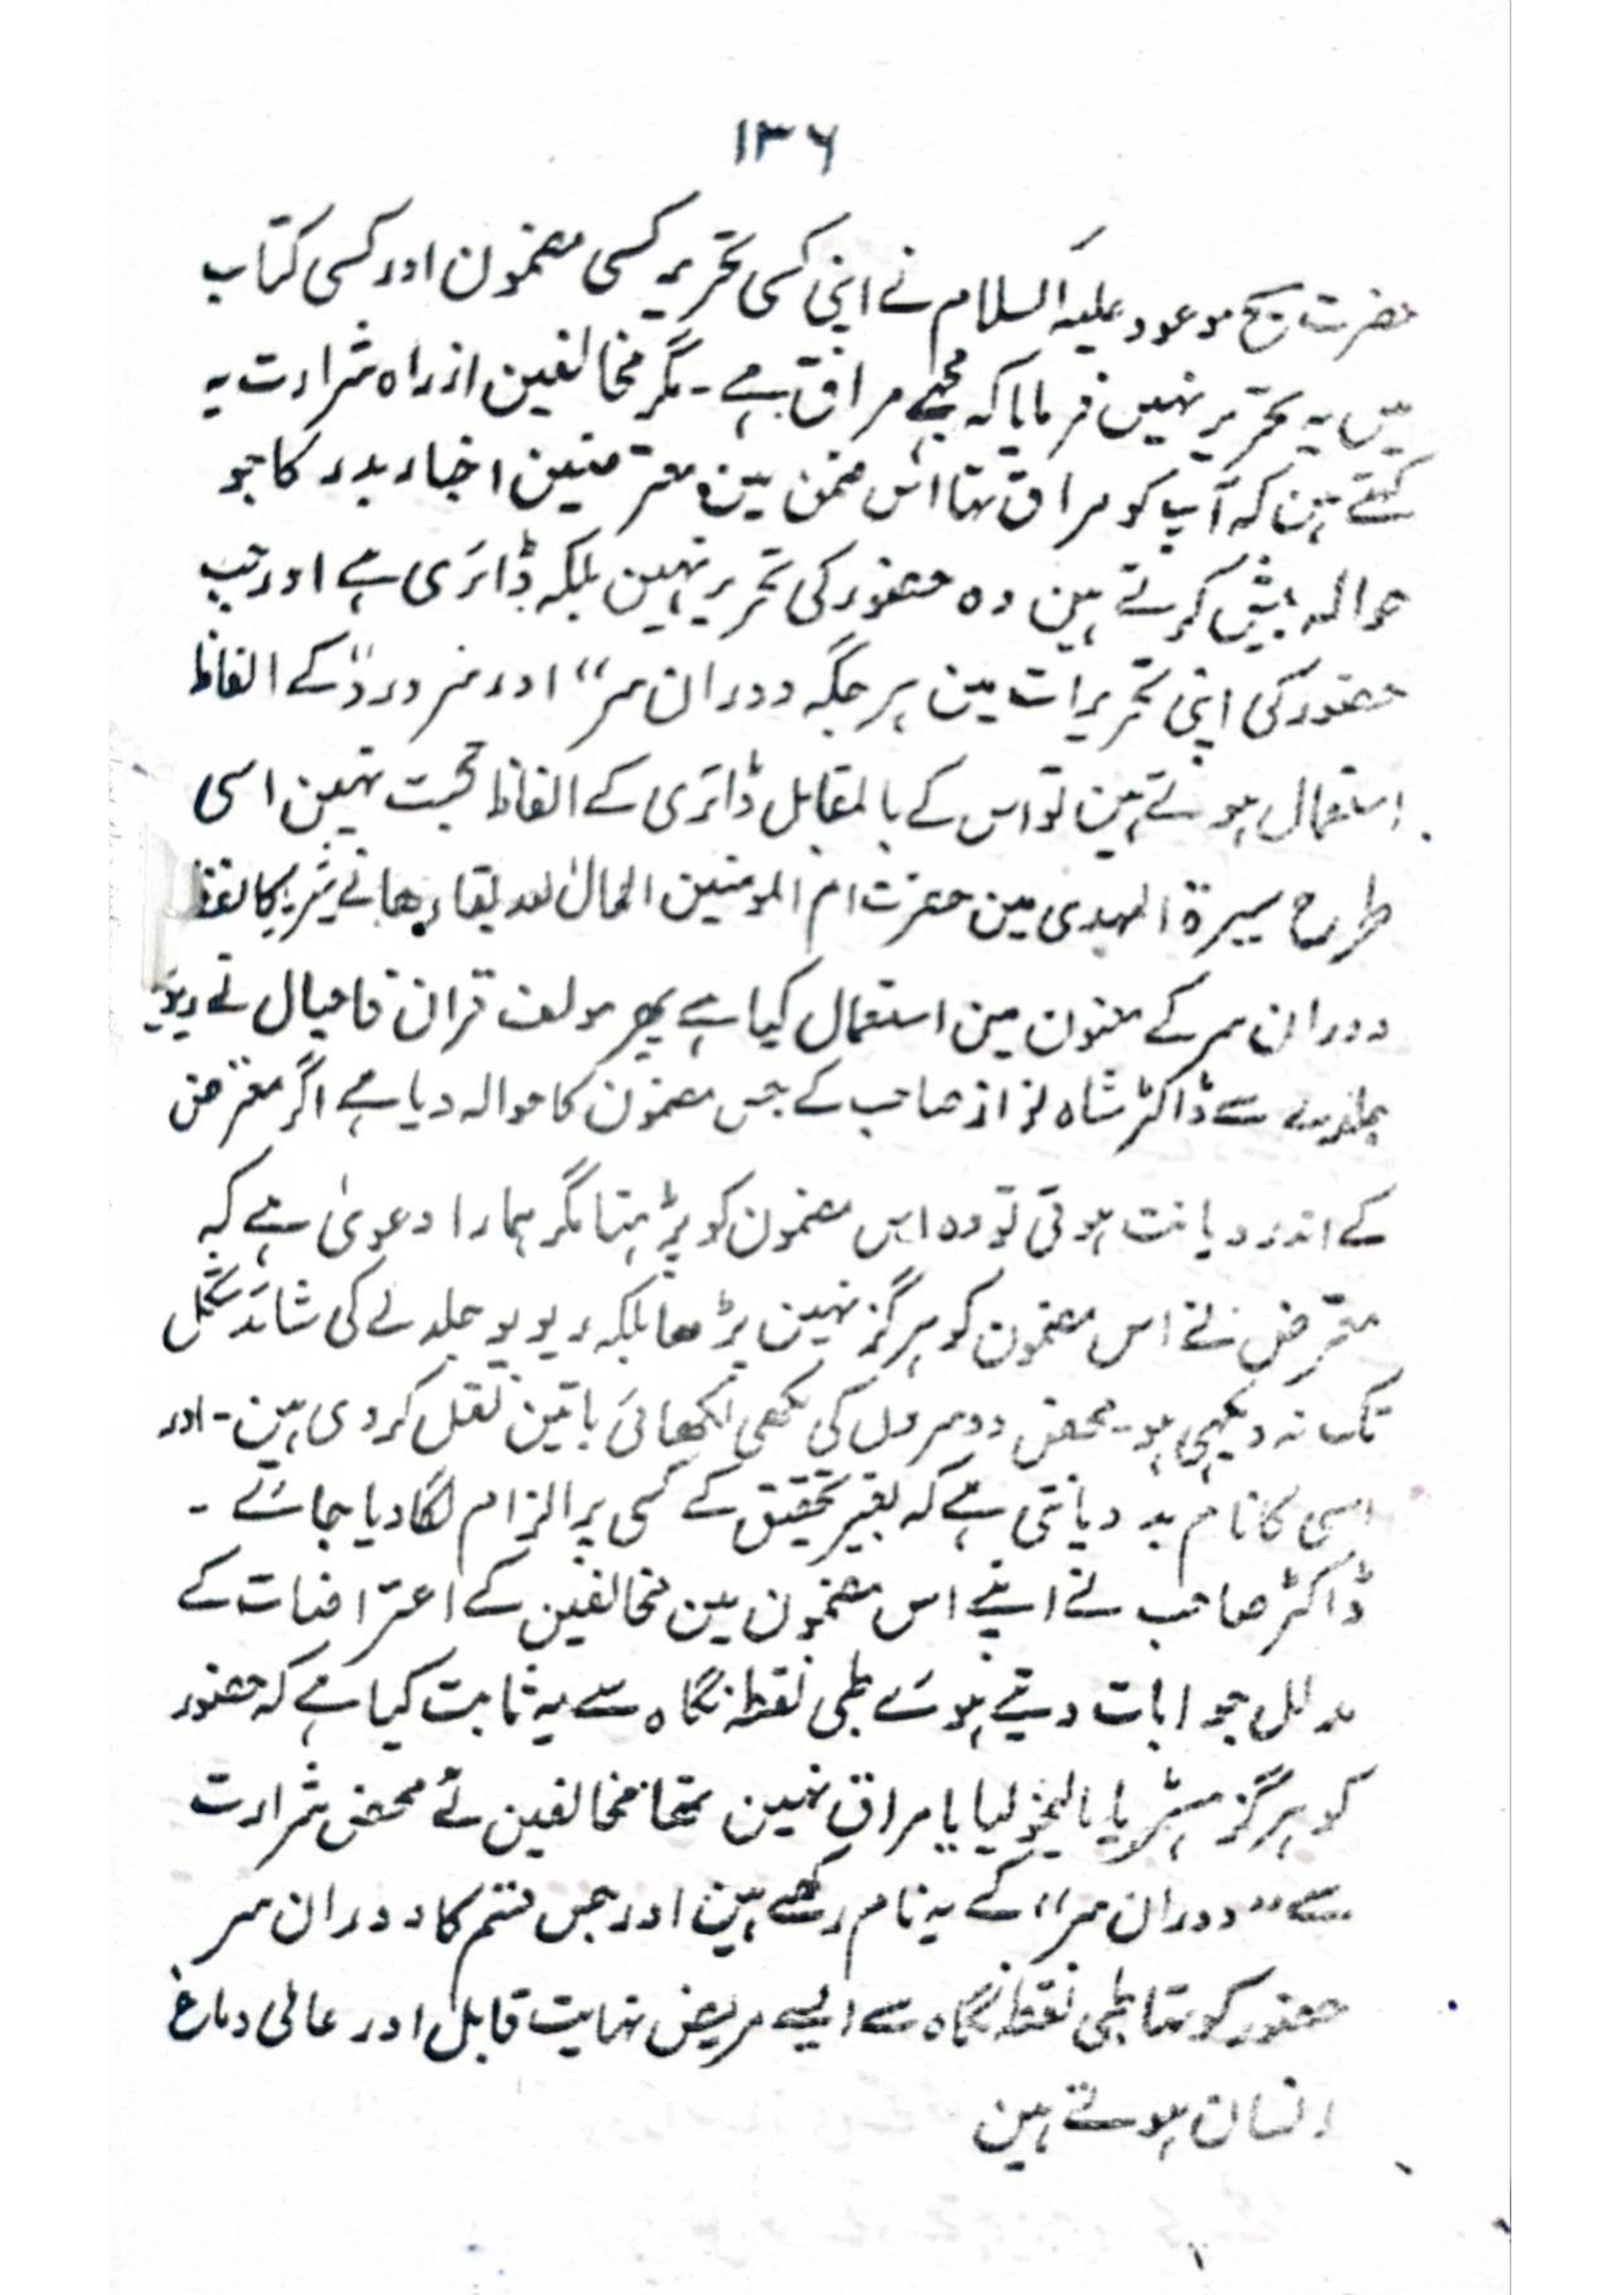 ۱۳۶
حضرت مسیح موعود علیہ السلام نے اپنی کسی تحریر کسی مضمون اور کسی کتاب
میں یہ تحریر نہیں فرمایا کہ مجھے مراق ہے ۔ مگر مخالفین از راہ شرارت یہ
کہتے ہین کہ آپ کو مراق تہا اس ضمن میں معترضین اخبار بدر کا جو
حوالہ پیش کرتے ہین وہ حضور کی تحریر نہین بلکہ ڈائری ہے اور جب
حضور کی اپنی تحریرات مین ہر جگہ دوران سر“ اور سر درد“ کے الفاظ
استعمال ہوئے ہین تو اس کے بالمقابل ڈائری کے الفاظ حجت نہین اسی
طرح سیرۃ المہدی مین حضرت ام المومنین اطال اللہ بقاءھا نے ہسٹریا کا لفظ
دوران سر کے معنون مین استعمال کیا ہے پھر مولف قران قادیال نے ریویو
جلد سے ڈاکٹر شاہ نواز صاحب کے جس مضمون کا حوالہ دیا ہے اگر معترض
کے اندر دیانت ہوتی تو وہ اس مضمون کو پڑہتا مگر ہمارا دعویٰ ہے کہ
معترض نے اس مضمون کو ہرگز نہین پڑھا بلکہ ریویو جلد کی شائد شکل
تک نہ دیکہی ہو ۔ محض دوسروں کی لکھی لکھائی باتین نقل کر دی ہین ۔ اور
اسی کا نام بد دیانتی ہے کہ بغیر تحقیق کے کسی پر الزام لگا دیا جائے ۔
ڈاکٹر صاحب نے اپنے اس مضمون مین مخالفین کے اعتراضات کے
مدلل جوابات دیتے ہوئے طبی نقطہ نگاہ سے یہ ثابت کیا ہے کہ حضور
کو ہرگز ہسٹریا یا مالیخولیا یا مراق نہین تھا مخالفین نے محض شرارت
سے ”دوران سر“ کے یہ نام رکھے ہین اور جس قسم کا دوران سر
حضور کو تہا طبی نقطہ نگاہ سے ایسے مریض نہایت قابل اور عالی دماغ
انسان ہوتے ہین